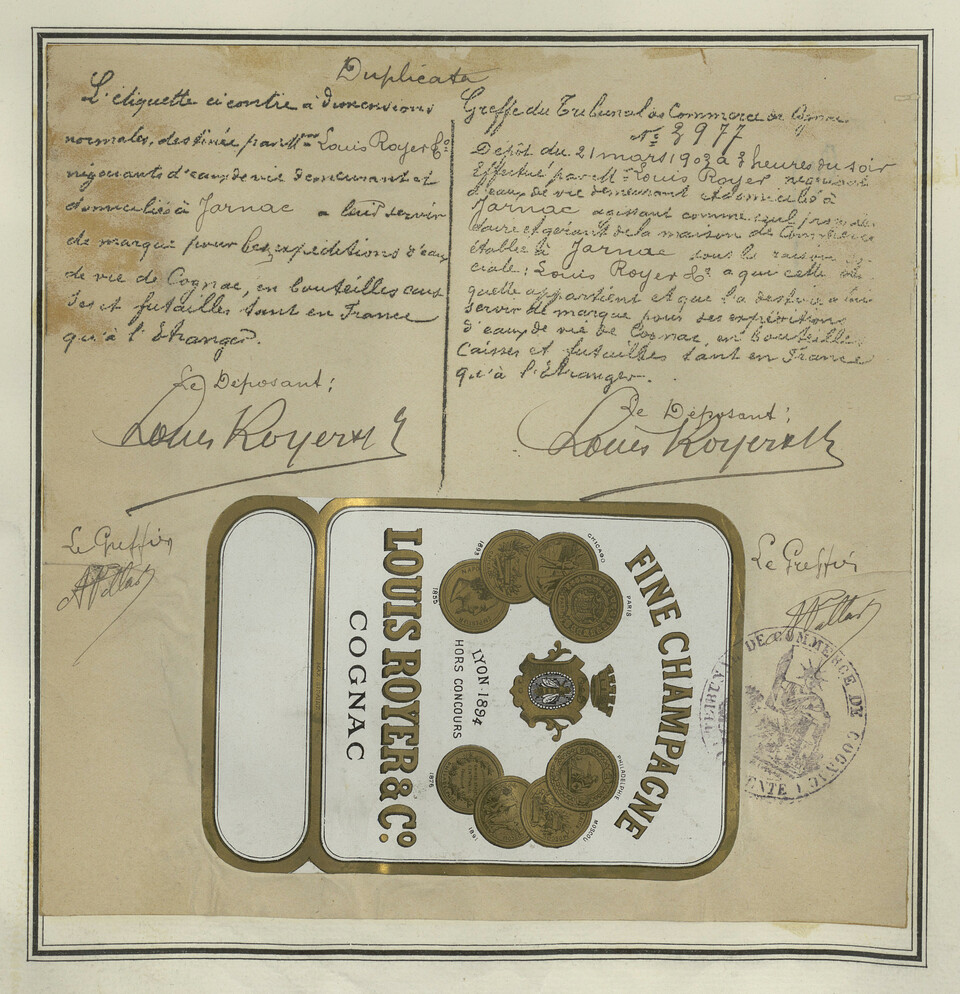 Duplicata
L'étiquette ci contre à dimensions
normales, destinée, par Mrs Louis Royer & Co
négociants d'eaux de vie demeurant et
domiciliés à Jarnac a leur servir
de marque pour les expéditions d'eaux
de vie de Cognac, en bouteilles cais
ses et futailles tant en France
qu'à l'Etranger.
Le Déposant:
Louis Royer & Co
Le Greffier
Greffe du Tribunal de Commerce de Cognac
No 3977
Dépôt du 21 mars 1903 à 3 heures du soir
Effectué par Mr Louis Royer négociant
d'eaux de vie demeurant et domicilié à
Jarnac agissant comme
et gérant de la maison de Commerce
établie à Jarnac sous la raison so
ciale: Louis Royer & Co a qui cette éti
quette appartient et que l'a destine a lui
servir de marque pour ses expéditions
d'eaux de vie de Cognac, en bouteilles
Caisses et futailles tant en France
qu'à l'Etranger.
Le Déposant:
Louis Royer & Co
Le Greffier
FINE CHAMPAGNE
CHICAGO
PARIS
1893
1855
PHILADELPHIE
MOSCOU
1876
1891
LYON-1894
HORS CONCOURS
LOUIS ROYER & Co.
COGNAC
TRIBUNAL DE COMMERCE DE COGNAC